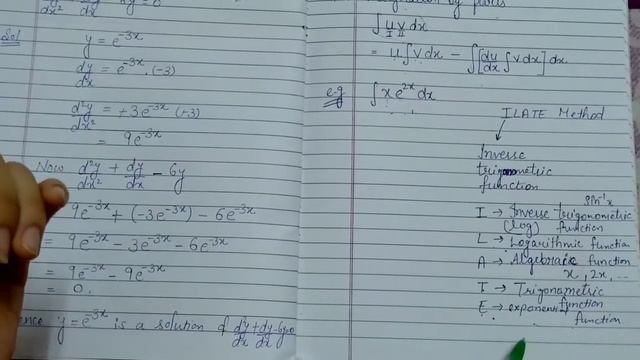 d²y/dx² dy/dx 6y = 0
Sol
y = e^-3x
dy/dx = e^-3x . (-3)
d²y/dx² = +3e^-3x (+3)
= 9e^-3x
Now d²y/dx² + dy/dx - 6y
9e^-3x + (-3e^-3x) - 6e^-3x
= 9e^-3x - 3e^-3x - 6e^-3x
= 9e^-3x - 9e^-3x
= 0.
y = e^-3x is a solution of d²y/dx² + dy/dx - 6y=0
by parts
∫ u v dx
I II
= u ∫ v dx - ∫ [du/dx ∫ v dx] dx
e.g ∫ x e^2x dx
ILATE Method
Inverse
trigonometric
function
sin⁻¹x
I → Inverse trigonometric
(log) function
L → Logarithmic function
A → Algebraic function
x, 2x, ...
T → Trigonometric
function
E → exponential
function